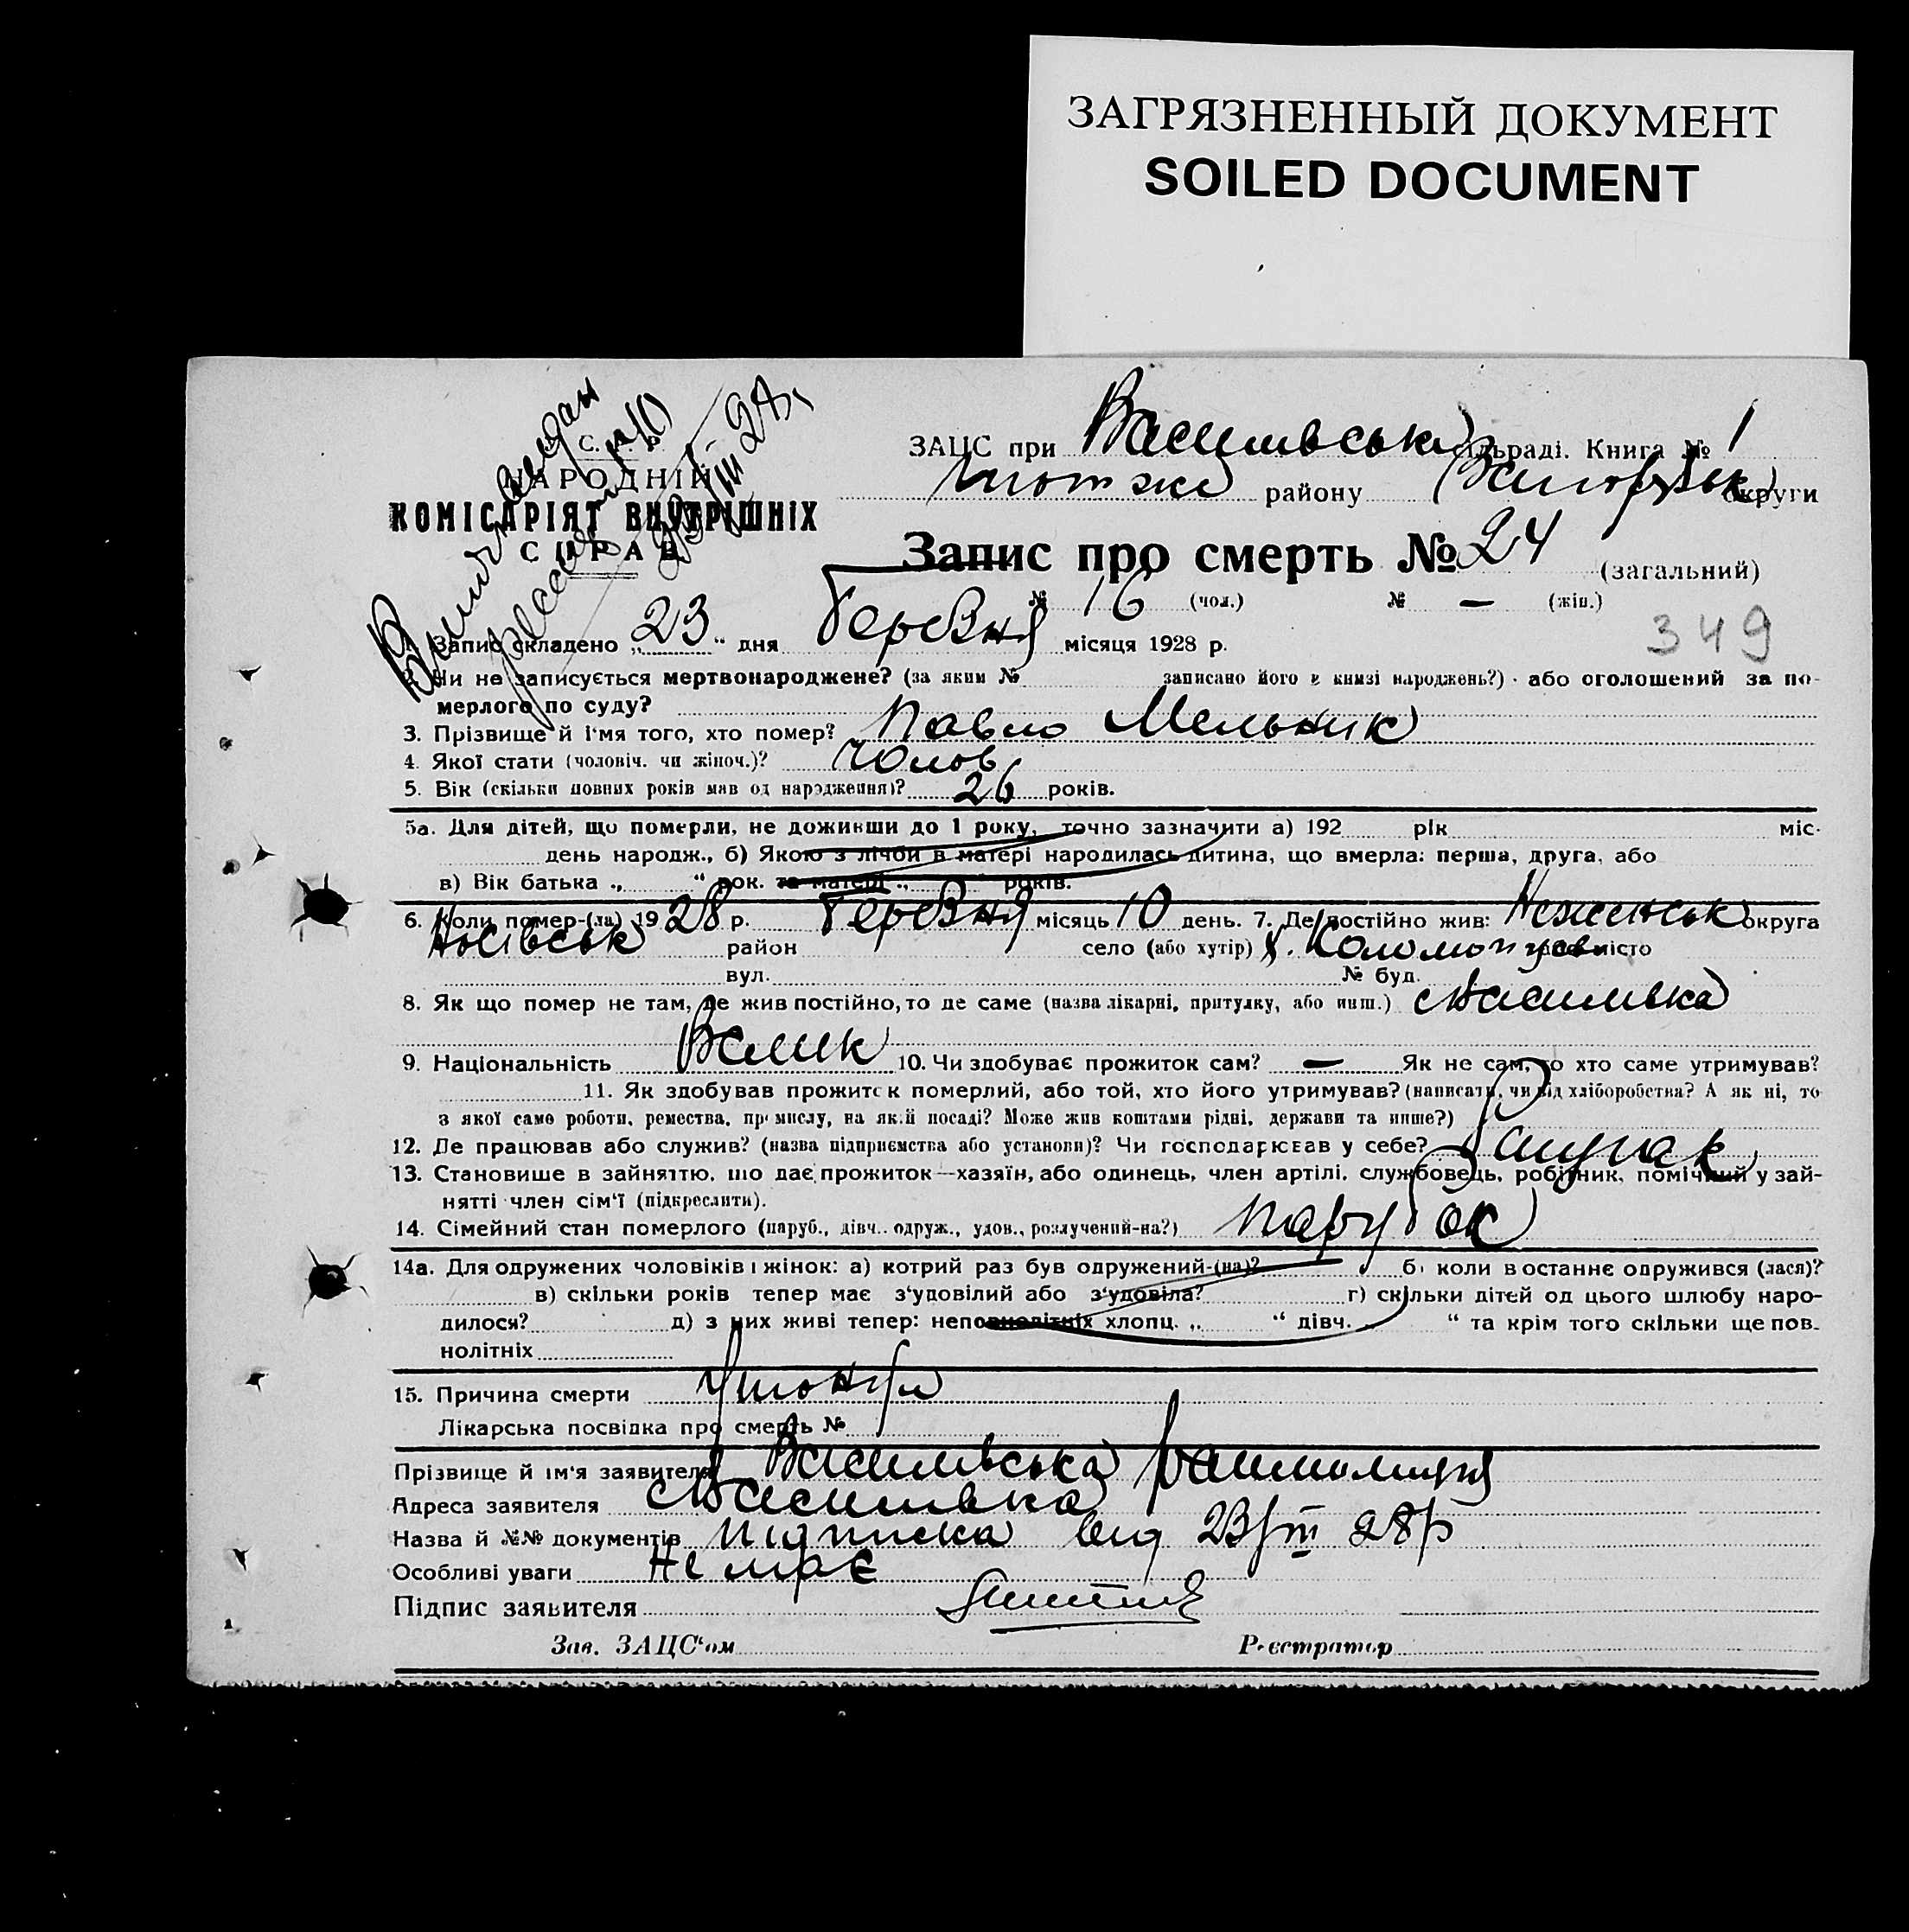 ЗАГРЯЗНЕННЫЙ ДОКУМЕНТ
SOILED DOCUMENT
С. Р.
НАРОДНІЙ
КОМІСАРІЯТ ВНУТРІШНІХ
СПРАВ
28 р.
ЗАЦС при Василівській сільраді. Книга № 1
тот же району Запорізьк округи
Запис про смерть № 24 (загальний)
№ 16 (чол.) № — (жін.)
349
1. Запис складено „23“ дня Червня місяця 1928 р.
2. Чи не записується мертвонароджене? (за яким № записано його в книзі народжень?) або оголошений за по-
мерлого по суду?
3. Прізвище й ім'я того, хто помер? Павло Мельник
4. Якої стати (чоловіч. чи жіноч.)? Чолов
5. Вік (скільки повних років мав од народження)? 26 років.
5а. Для дітей, що померли, не доживши до 1 року, точно зазначити а) 192 рік міс.
день народж., б) Якою з лічби в матері народилась дитина, що вмерла: перша, друга, або
в) Вік батька „ “ рок. та матері „ “ років.
6. Коли помер-(ла) 1928 р. Червня місяць 10 день. 7. Де постійно жив: Неженськ округа
Носівськ район село (або хутір) х. Коломійцев місто
вул. № буд.
8. Як що помер не там, де жив постійно, то де саме (назва лікарні, притулку, або инш.) с Василивка
9. Національність 10. Чи здобуває прожиток сам? — Як не сам, то хто саме утримував?
11. Як здобував прожиток померлий, або той, хто його утримував? (написати, чи від хліборобства? А як ні, то
з якої саме роботи, ремества, промислу, на якій посаді? Може жив коштами рідні, держави та инше?)
12. Де працював або служив? (назва підприємства або установи)? Чи господарював у себе?
13. Становище в зайняттю, що дає прожиток—хазяїн, або одинець, член артілі, службовець, робітник, помічний у зай-
нятті член сім'ї (підкреслити).
14. Сімейний стан померлого (паруб., дівч., одруж., удов., розлучений-на?) парубок
14а. Для одружених чоловіків і жінок: а) котрий раз був одружений-(на)? б) коли востаннє одружився (лася)?
в) скільки років тепер має з'удовілий або з'удовіла? г) скільки дітей од цього шлюбу наро-
дилося? д) з них живі тепер: неповнолітніх хлопц. „ “ дівч. “ та крім того скільки ще пов-
нолітніх
15. Причина смерти Утонув
Лікарська посвідка про смерть №
Прізвище й ім'я заявителя Василивська
Адреса заявителя с Василивка
Назва й №№ документів підписка від 23/III 28р
Особливі уваги Не має
Підпис заявителя
Зав. ЗАЦС'ом Реєстратор